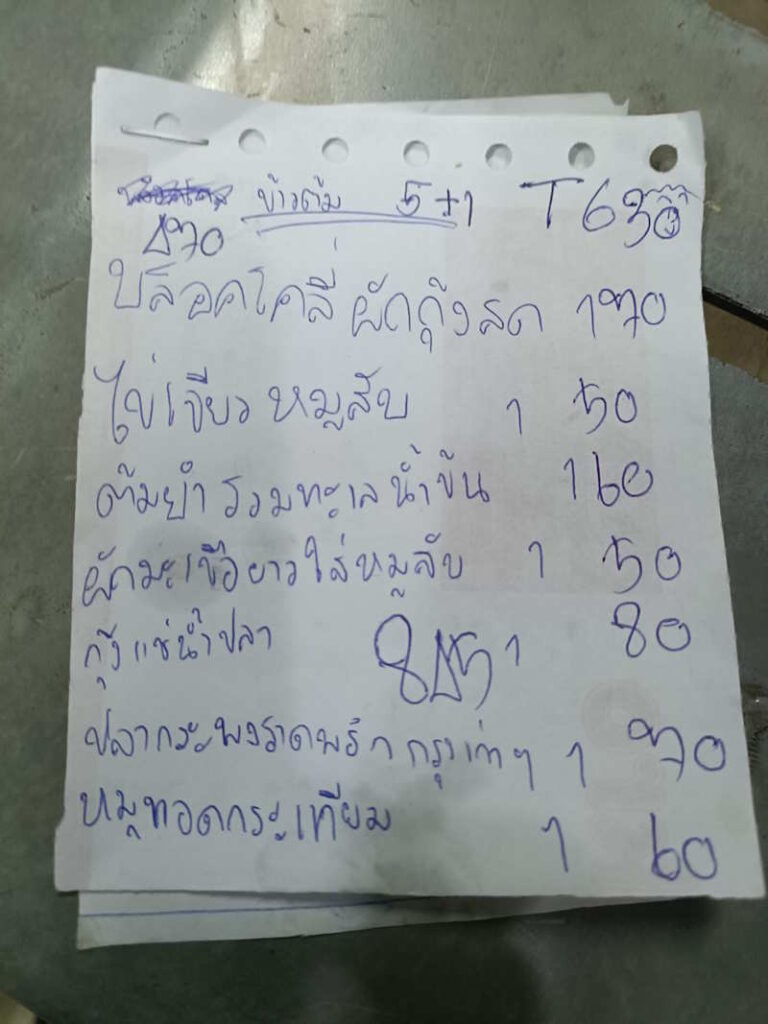 ข้าวต้ม 5+1 T630
บล็อคโคลี่ผัดกุ้งสด 1 70
ไข่เจียวหมูสับ 1 50
ต้มยำรวมทะเลน้ำข้น 1 60
ผัดมะเขือยาวใส่หมูสับ 1 50
กุ้งแช่น้ำปลา 1 80
ปลากระพงราดพริกกรุบเก่าๆ 1 70
หมูทอดกระเทียม 1 60